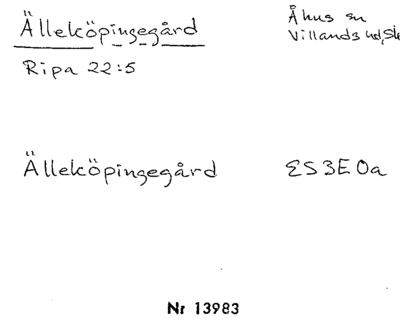 Älleköpingegård
Åhus sn
Villands hd, Sk
Ripa 22:5
Älleköpingegård
ES3E0a
Nr 13983